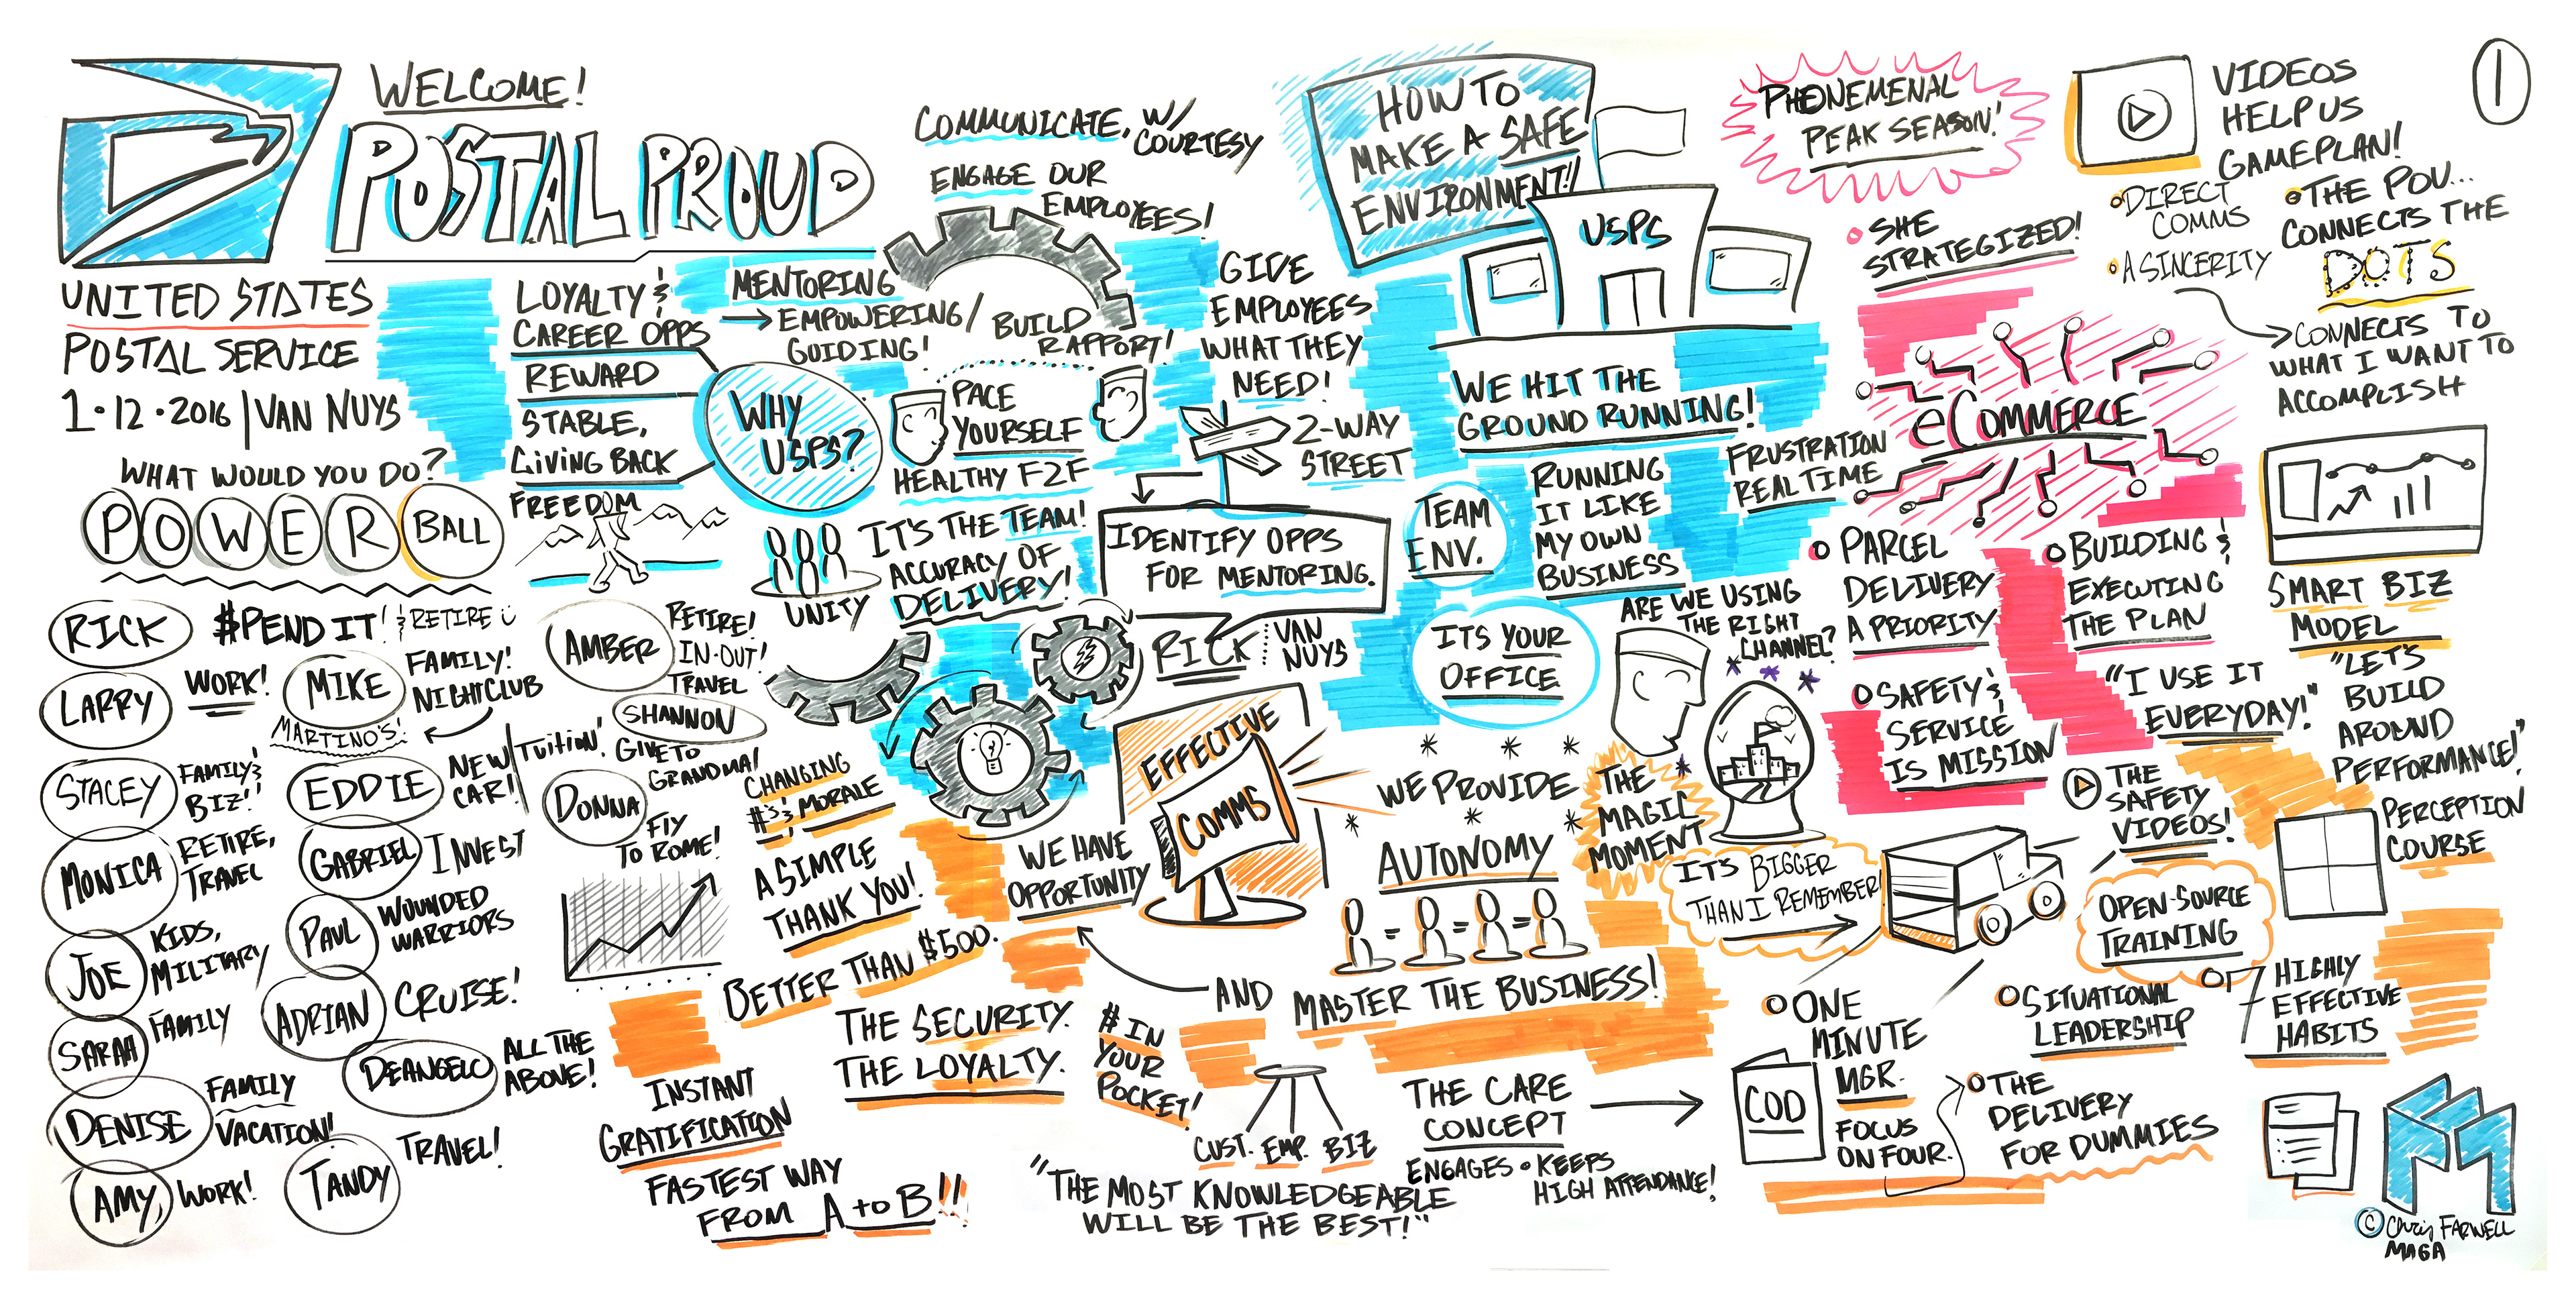 WELCOME!
POSTAL PROUD
UNITED STATES
POSTAL SERVICE
1·12·2016 | VAN NUYS
WHAT WOULD YOU DO?
POWER BALL
RICK
$PEND IT! & RETIRE
LARRY
WORK!
MIKE
FAMILY!
NIGHTCLUB
MARTINO'S!
STACEY
FAMILY &
BIZ!
EDDIE
NEW
CAR!
TUITION!
MONICA
RETIRE,
TRAVEL
GABRIEL
INVEST
JOE
KIDS,
MILITARY
PAUL
WOUNDED
WARRIORS
SARAH
FAMILY
ADRIAN
CRUISE!
DEANGELO
ALL THE
ABOVE!
DENISE
FAMILY
VACATION!
AMY
WORK!
TANDY
TRAVEL!
AMBER
RETIRE!
IN-OUT!
TRAVEL
SHANNON
GIVE TO
GRANDMA!
DONNA
FLY
TO ROME!
LOYALTY &
CAREER OPPS
REWARD
STABLE,
GIVING BACK
FREEDOM
WHY
USPS?
MENTORING
EMPOWERING/
GUIDING!
COMMUNICATE, W/
COURTESY
ENGAGE OUR
EMPLOYEES!
BUILD
RAPPORT!
PACE
YOURSELF
HEALTHY F2F
UNITY
IT'S THE TEAM!
ACCURACY OF
DELIVERY!
GIVE
EMPLOYEES
WHAT THEY
NEED!
2-WAY
STREET
IDENTIFY OPPS
FOR MENTORING.
RICK
VAN
NUYS
CHANGING
#'S & MORALE
A SIMPLE
THANK YOU!
BETTER THAN $500.
THE SECURITY.
THE LOYALTY.
INSTANT
GRATIFICATION
FASTEST WAY
FROM A TO B!!
WE HAVE
OPPORTUNITY
EFFECTIVE
COMMS
HOW TO
MAKE A SAFE
ENVIRONMENT!!
USPS
WE HIT THE
GROUND RUNNING!
TEAM
ENV.
RUNNING
IT LIKE
MY OWN
BUSINESS
FRUSTRATION
REAL TIME
ITS YOUR
OFFICE
ARE WE USING
THE RIGHT
CHANNEL?
WE PROVIDE
AUTONOMY
AND MASTER THE BUSINESS!
THE
MAGIC
MOMENT
IT'S BIGGER
THAN I REMEMBER!
$ IN
YOUR
POCKET!
CUST. EMP. BIZ
THE CARE
CONCEPT
ENGAGES • KEEPS
HIGH ATTENDANCE!
"THE MOST KNOWLEDGEABLE
WILL BE THE BEST!"
PHONEMENAL
PEAK SEASON!
SHE
STRATEGIZED!
eCOMMERCE
PARCEL
DELIVERY
A PRIORITY
SAFETY &
SERVICE
IS MISSION
BUILDING &
EXECUTING
THE PLAN
"I USE IT
EVERYDAY!"
VIDEOS
HELP US
GAMEPLAN!
DIRECT
COMMS
A SINCERITY
THE POV...
CONNECTS THE
DOTS
CONNECTS TO
WHAT I WANT TO
ACCOMPLISH
SMART BIZ
MODEL
"LET'S
BUILD
AROUND
PERFORMANCE!"
THE
SAFETY
VIDEOS!
PERCEPTION
COURSE
OPEN-SOURCE
TRAINING
ONE
MINUTE
MGR.
COD
FOCUS
ON FOUR.
SITUATIONAL
LEADERSHIP
7 HIGHLY
EFFECTIVE
HABITS
THE
DELIVERY
FOR DUMMIES
1
© Chris FARWELL
MAGA